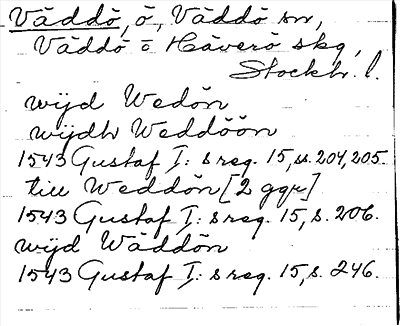 Väddö, ö, Väddö sn,
Väddö o Häverö skg,
Stockh. l.
wijd Wedön
wijdh Weddöön
1543 Gustaf I: s reg. 15, ss. 204, 205.
till Weddön [2 ggr]
1543 Gustaf I: s reg. 15, s. 206.
wijd Wäddön
1543 Gustaf I: s reg. 15, s. 246.